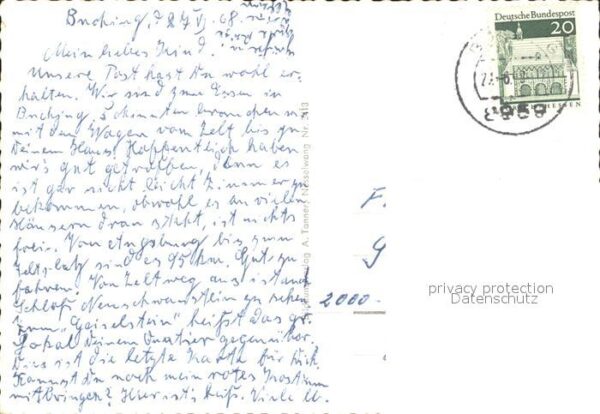 Buching, d 27. VI. 68.
Mein liebes Kind.
Unsere Post hast Du wohl er-
halten. Wir sind zum Essen in
Buching, 5 Minuten brauchen wir
mit dem Wagen vom Zelt bis zu
Deinem Haus. Hoffentlich haben
wir's gut getroffen, denn es
ist gar nicht leicht Zimmer zu
bekommen, obwohl es an vielen
Häusern dran steht, ist nichts
frei. Von Augsburg bis zum
Zeltplatz sind es 95 km. Gut zu
fahren. Von Zelt weg aus ist auch
Schloß Neuschwanstein zu sehen.
Zum "Gaiselstein" heißt das gr.
Lokal Deinem Quartier gegenüber.
Dies ist die letzte Karte für Dich.
Kannst Du noch mein rotes Kostüm
mitbringen? Hier ist's heiß. Viele lb.
Verlag A. Tanner, Nesselwang Nr.
Deutsche Bundespost
20
8959
F.
G
2000-
privacy protection
Datenschutz